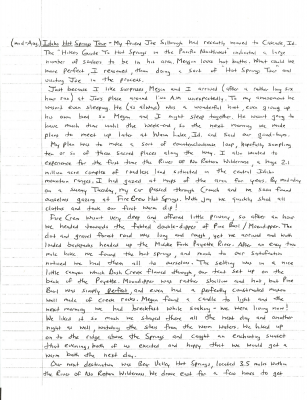 (mid-Aug) Idaho Hot Springs Tour - My friend Joe had recently moved to Cascade, Id.
The "Hikers Guide To Hot Springs in the Pacific Northwest" indicates a large
number of soakers to be in his area, Megan loves hot buttes. What could be
more perfect, I reasoned, than doing a sort of Hot Springs Tour and
visiting Joe in the process.
Just because I like surprises, Megan and I arrived (after a rather long six
hour ride) at Joe's place around 1:00 A.M. unexpectedly. To my amazement he
wasn't even sleeping. He (as always) was a wonderful host, even giving up
his own bed so Megan and I might sleep together. He wasn't going to
have much time until the weekend so the next morning we made
plans to meet up later at Warm Lake, Id. and said our good-byes.
My plan was to make a sort of counterclockwise loop, hopefully sampling
ten or so of these sacred places along the way. I also wanted to
experience for the first time the River Of No Return Wilderness, a huge 2.1
million acre complex of roadless land situated in the central Idaho
mountain ranges, I had gazed at maps of the area for years. By mid-day
on a sunny Thursday, my car passed through Crouch and we soon found
ourselves gazing at Fire Crew Hot Springs. With joy we quickly shed all
clothes and took our first warm dip!
Fire Crew wasn't very deep and offered little privacy, so after an hour
we headed towards the fabled double-dipper of Pine Burl / Moondipper. The
dirt and gravel forest road was long and rough, yet we arrived and with
loaded backpacks headed up the Middle Fork Payette River. After an easy two
mile hike we found the hot springs and much to our satisfaction
noticed we had them all to ourselves. The setting was in a nice
little canyon which Dash Creek flowed through, our tent set up on the
bank of the Payette. Moondipper was rather shallow and hot, but Pine
Burl was simply perfect, and deep, had a perfectly constructed masonry
wall made of creek rocks. Megan found a candle to light and the
next morning we had breakfast while soaking - we were living now!
We liked it so much we stayed there all the next day and another
night as well, watching the stars from the warm waters. We hiked up
on to the ridge above the Springs and caught an enchanting sunset
that evening, both of us excited and happy that we would get a
warm bath the next day.
Our next destination was Bear Valley Hot Springs, located 3.5 miles within
the River of No Return Wilderness. We drove east for a few hours to get